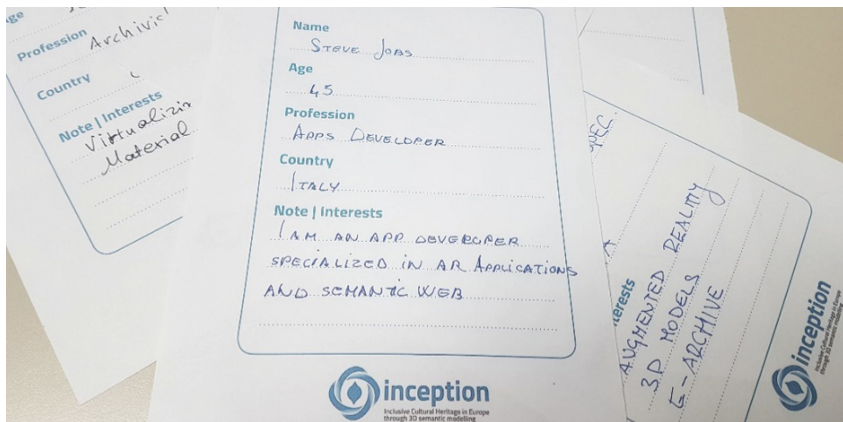 ge
Profession
Archivi
Country
Note | Interests
Virtualizin
Material
Name
STEVE JOBS
Age
45
Profession
APPS DEVELOPER
Country
ITALY
Note | Interests
I AM AN APP DEVELOPER
SPECIALIZED IN AR APPLICATIONS
AND SEMANTIC WEB
inception
Inclusive Cultural Heritage in Europe
through 3D semantic modelling
PEC.
terests
AUGMENTED REALITY
3D MODELS
E-ARCHIVE
inception
Inclusive Cultural Heritage in Europe
through 3D semantic modelling